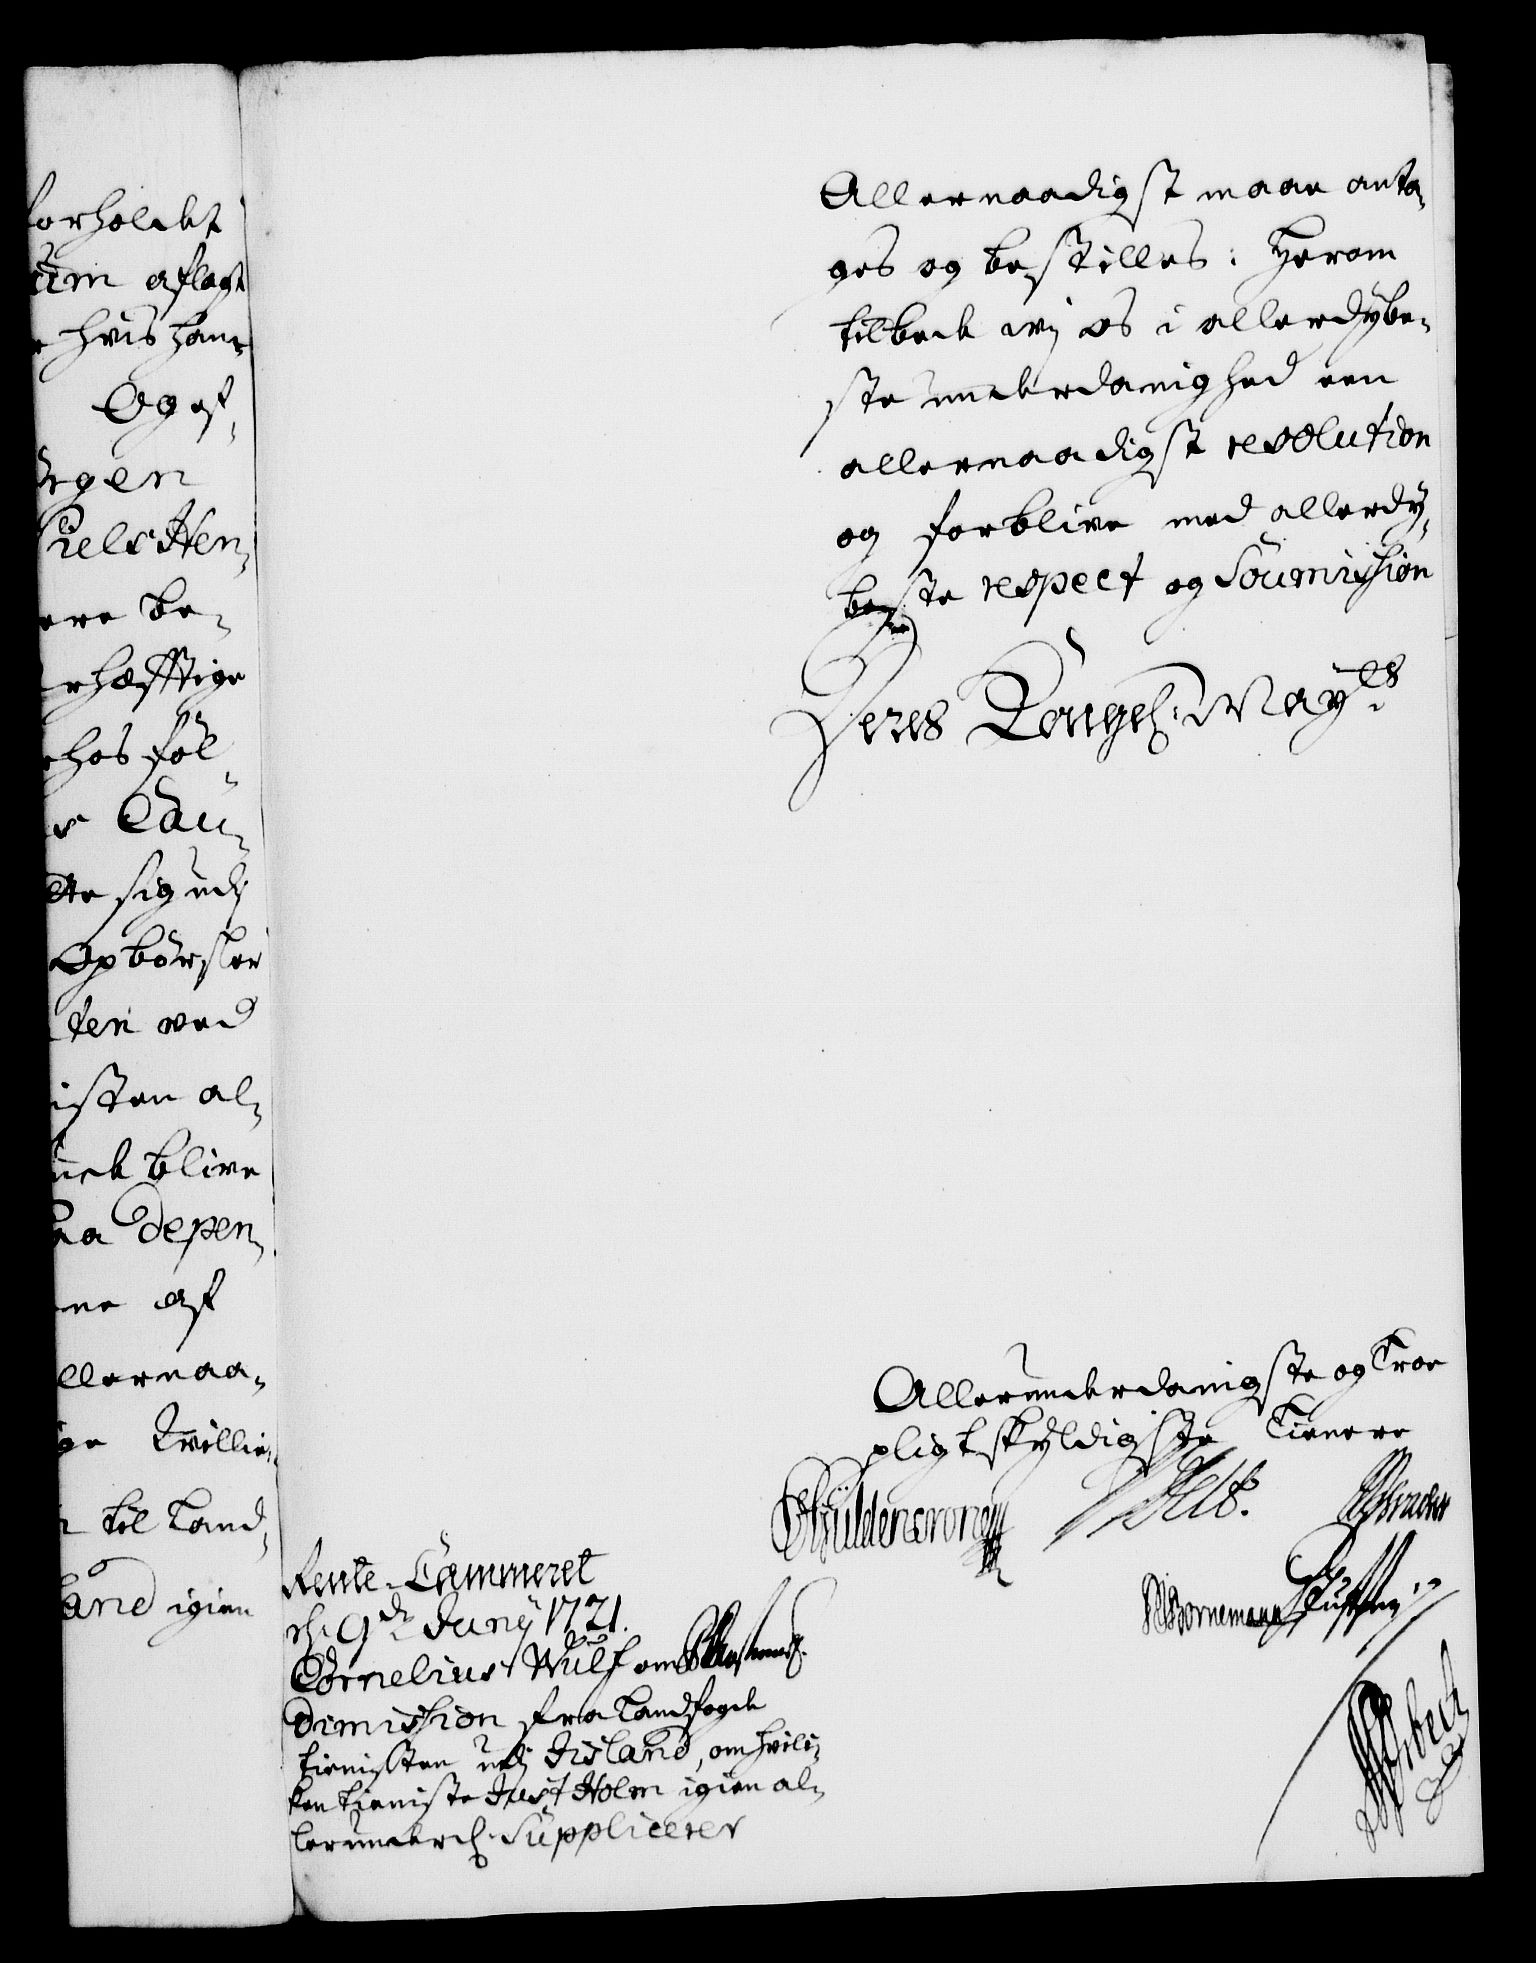 forholdet
um aflagt
hvis hans
Og ef-
rgen
Niels Hen-
ere be-
rhæfftige
hos føl-
Cau-
tte sig udj
Opbørsler
ten ved
isten al-
unde blive
aa Depen-
ne af
llernaa-
ige Willie
til Land-
land igien
Allernaadigst maae anta-
ges og bestilles: Herom
udbede wj os i allerdybe-
ste underdanighed een
allernaadigst resolution
og forblive med allerdy-
beste respect og Soumission
Deres Kongel. Mayts.
Allerunderdanigste og Troe
pligtskyldigste Tienere
Güldencrone
Bornemann
Rente-Cammeret
d. 9de Junij 1721.
Cornelius Wulf om
Dimission fra Landfoget
tienisten udj Island, om hvil-
ken tieniste Just Holm igien al-
lerunderd. Supplicerer